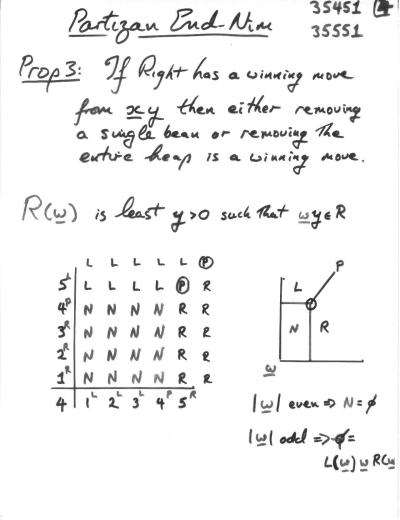 Partizan End-Nim
35451 4
35551
Prop 3: If Right has a winning move
from x y then either removing
a single bean or removing the
entire heap is a winning move.
R(w) is least y>0 such that wy∈R
L L L L L P
5ᴸ L L L L P R
4ᴾ N N N N R R
3ᴿ N N N N R R
2ᴿ N N N N R R
1ᴿ N N N N R R
4 1ᴸ 2ᴸ 3ᴸ 4ᴾ 5ᴿ
P
L
N R
w
|w| even ⇒ N = ϕ
|w| odd ⇒ ϕ =
L(w) w R(w